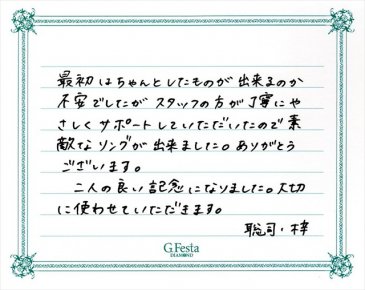 最初はちゃんとしたものが出来るのか
不安でしたがスタッフの方が丁寧にや
さしくサポートしていただいたので素
敵なリングが出来ました。ありがとう
ございます。
二人の良い記念になりました。大切
に使わせていただきます。
聡司・梓
G.Festa
DIAMOND